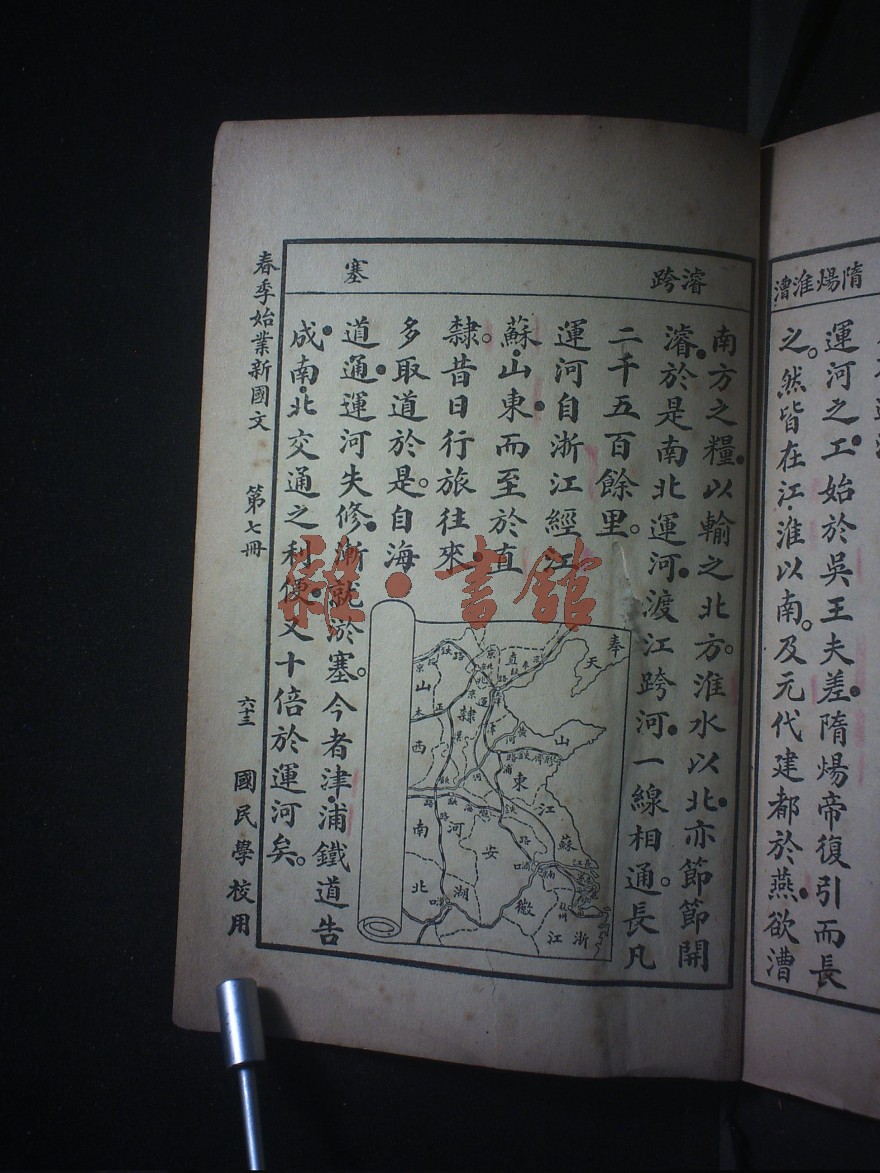 隋煬淮漕
運河之工。始於吳王夫差。隋煬帝復引而長
之。然皆在江淮以南。及元代建都於燕。欲漕
濬跨
塞
南方之糧。以輸之北方。淮水以北。亦節節開
濬。於是南北運河。渡江跨河。一線相通。長凡
二千五百餘里。
運河自浙江經江
蘇山東。而至於直
隸。昔日行旅往來。
多取道於是。自海
道通。運河失修。漸就於塞。今者津浦鐵道告
成。南北交通之利便。又十倍於運河矣。
奉
天
直
隸
山
東
山
西
河
南
江
蘇
安
徽
湖
北
浙
江
春季始業新國文 第七冊 六十三 國民學校用
雜·書館